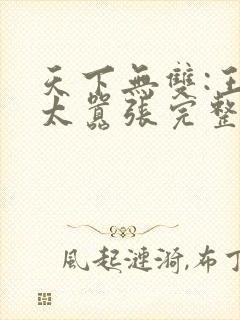 天下無雙:王
太囂張完整
風起漣漪,布丁